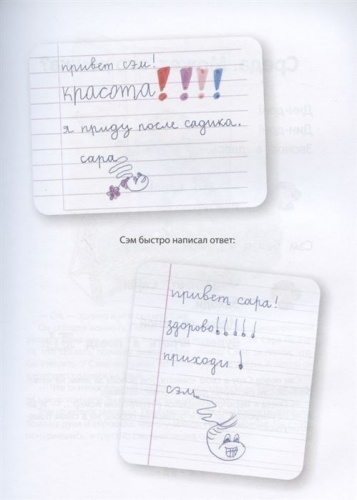 привет сэм!
красота!!!!
я приду после садика.
сара
Сэм быстро написал ответ:
привет сара!
здорово!!!!!
приходи!
сэм